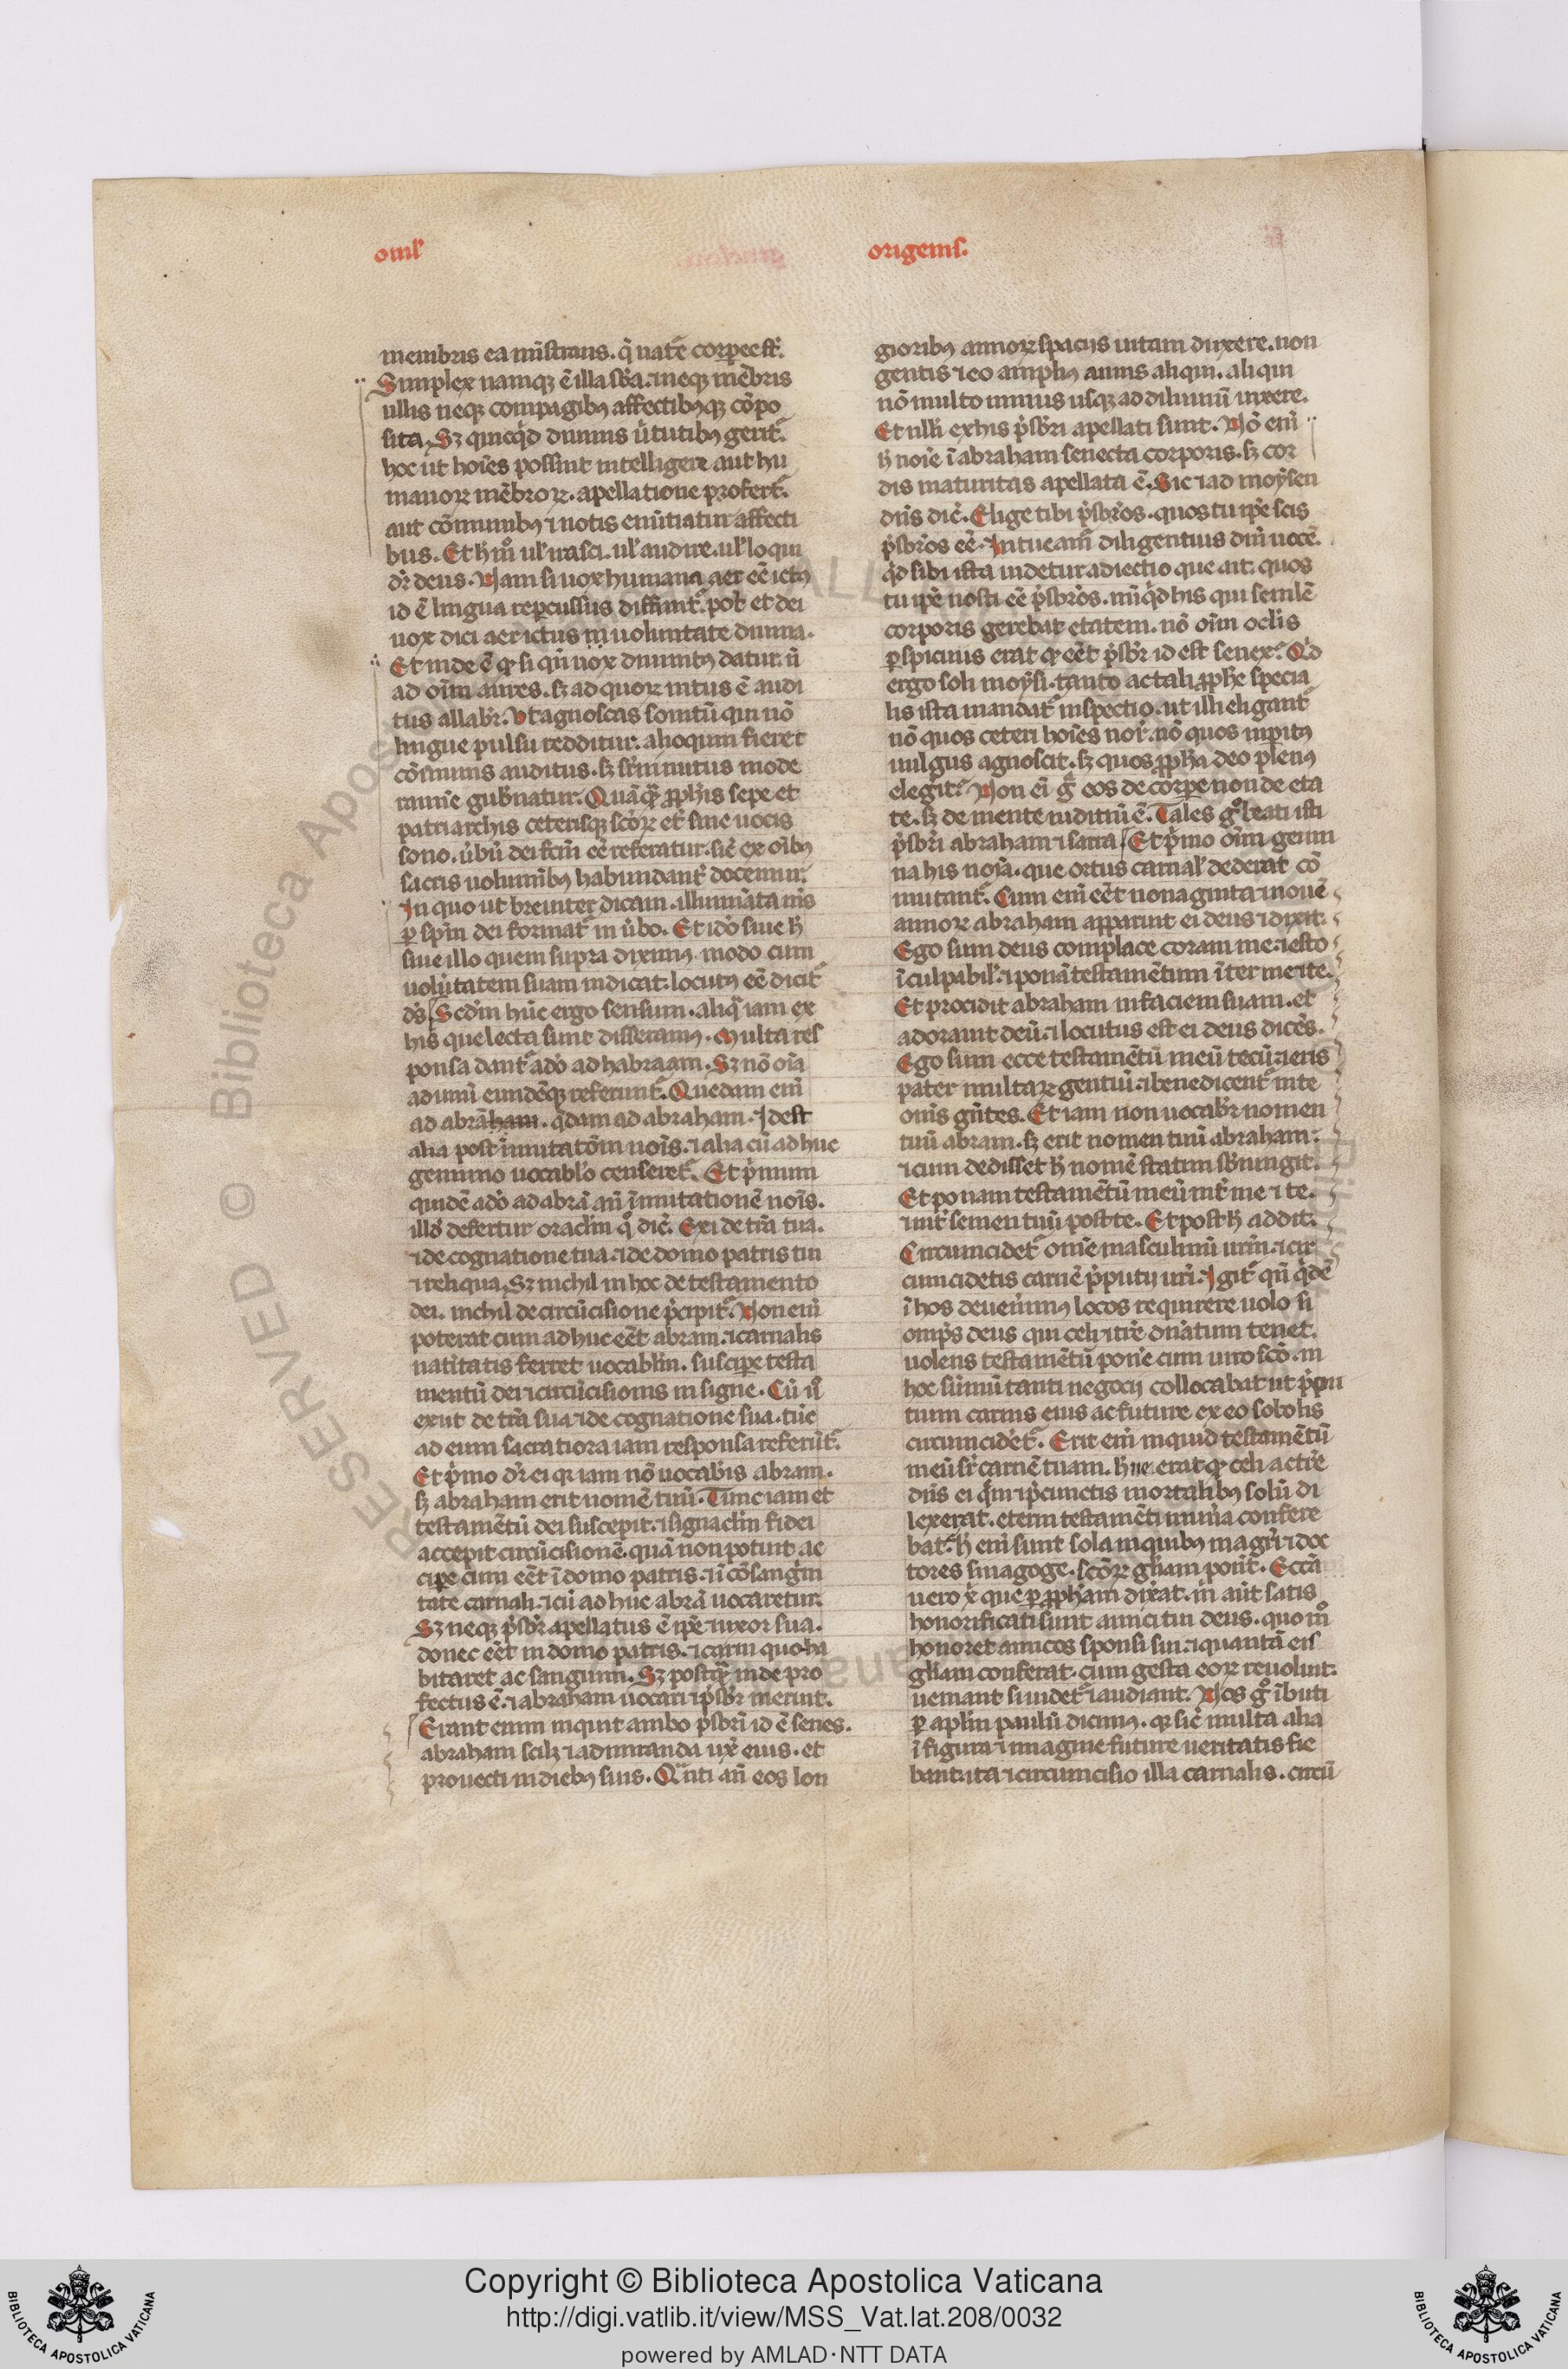 omĺ
origenis.
membris ea ministrans. q̇ natē corpee st̄.
Simplex namqꝫ ē illa sb̄a. ⁊ neqꝫ mēbris
ullis neqꝫ compagibꝰ affectibꝰqꝫ cōpo
sita. Sꝫ quicq̇d diuinis u̇tutibꝰ gerit᷑.
hoc ut hoīes possint intelligere aut hu
manoꝝ mēbroꝝ. apellatione profert᷑.
aut cōmunibꝰ ⁊ notis enūtiatur affecti
bus. Et ħ mͦ ul̓ irasci. ul̓ audire. ul̓ loqui
dr̄ deus. Nam si uox humana aer eē ictꝰ
id ē lingua repcussus diffinit᷑. pot̄ et dei
uox dici aer ictus ui uoluntate diuina.
Et inde ē qꝫ si qn̄ uox diuinitꝰ datur. n̄
ad oīm aures. sꝫ ad quoꝝ intus ē audi
tus allabr̄. Ut agnoscas sonitū qui nō
lingue pulsu redditur. alioquin fieret
cōmunis auditus. sꝫ sr̄ni nutus mode
ramīe gub̄natur. Quāqꝫ ꝓph̄is sepe et
patriarchis ceterisqꝫ sc̄oꝝ et sine uocis
sono. u̇bū dei fc̄m eē referatur. sic̄ ex oībꝰ
sacris uoluminibꝰ habundant᷑ docemur.
In quo ut breuiter dicam. illuminata m̄s
ꝑ sp̄m dei format᷑ in u̇bo. Et ido siue ħ
siue illo quem supra diximꝰ modo cum
uolūtatem suam indicat. locutꝰ eē dicit᷑
ds̄. Scdm hūc ergo sensum. aliq̄ iam ex
his que lecta sunt disseramꝰ. Multa res
ponsa dant᷑ a do ad habraam. Sꝫ nō oīa
ad unū eundēqꝫ referunt᷑. Quedam eni
ad abraham. q̄dam ad abraham. Id est
alia post īmutatōm noīs. ⁊ alia cū ad huc
genuino uocablo censeret᷑. Et p̄mum
quidē a do ad abrā an̄ īmutationē noīs.
illd̄ defertur oraclm qͦ dic̄. Exi de tr̄a tua.
⁊ de cognatione tua. ⁊ de domo patris tui
⁊ reliqua. Sꝫ nichil in hoc de testamento
dei. nichil de circūcisione p̄cipit᷑. Non eni
poterat cum ad huc eēt abram. ⁊ carnalis
natitatis ferret uocablm. suscipe testa
mentū dei ⁊ circūcisionis insigne. Cū u̇o
exiit de tr̄a sua ⁊ de cognatione sua. tūc
ad eum sacratiora iam responsa referūt᷑.
Et p̄mo dr̄ ei qꝫ iam nō uocab̄is abram.
sꝫ abraham erit nomē tuū. Tunc iam et
testamētū dei suscepit. ⁊ signaclm fidei
accepit circūcisionē. quā non potuit ac
cipe cum eēt ī domo patris. ⁊ ī cōsangin
tate carnali. ⁊ cū ad huc abrā uocaretur.
Sꝫ neqꝫ p̄sb̄r apellatus ē ipē ⁊ uxor sua.
donec eēt in domo patris. ⁊ carni quo ha
bitaret ac sanguini. Sꝫ postqꝫ inde pro
fectus ē. ⁊ abraham uocari ⁊ p̄sb̄r meruit.
Erant enim inquit ambo p̄sb̄ri id ē senes.
abraham scilꝫ ⁊ admiranda ux̄ eius. et
prouecti in diebꝰ suis. Qnti an̄ eos lon
gioribꝰ annoꝝ spaciis uitam duxere. non
gentis ⁊ eo amplꝰ annis aliqui. aliqui
nō multo minus usqꝫ ad diluuiū uixere.
Et nlli̇ ex his p̄sb̄ri apellati sunt. Nō eni
ħ noīe ī abraham senecta corporis. sꝫ cor
dis maturitas apellata ē. Sic ⁊ ad moysen
dn̄s dic̄. Elige tibi p̄sb̄ros. quos tu ipē scis
p̄sb̄ros eē. Intueam᷑ diligentius dni uocē.
q̇d sibi ista uidetur adiectio que ait. quos
tu ipē nosti eē p̄sb̄ros. nūq̇d his qui senilē
corporis gerebat etatem. nō oīm oclis
ꝑspicuus erat qꝫ eēt p̄sb̄r id est senex. Q̇d
ergo soli moysi. tanto ac tali ꝓph̄e specia
lis ista mandat᷑ inspectio. ut illi eligant᷑
nō quos ceteri hoīes nor̄. nō quos inpitꝰ
uulgus agnoscit. sꝫ quos ꝓph̄a deo plenꝰ
elegit. Non ei ḡ eos de corpe non de eta
te. sꝫ de mente iuditiū ē. Tales gͦ beati isti
p̄sb̄ri abraham ⁊ sarra. Et p̄mo oīm genui
na his noīa. que ortus carnal̓ dederat cō
mutant᷑. Cum eni eēt nonaginta ⁊ nouē
annoꝝ abraham apparuit ei deus ⁊ dixit.
Ego sum deus complace coram me. ⁊ esto
īculpabil̓. ⁊ ponā testamētum īter me ⁊ te.
Et procidit abraham in faciem suam. et
adorauit deū. ⁊ locutus est ei deus dicēs.
Ego sum ecce testamētū meū tecū. ⁊ eris
pater multaꝝ gentiū. ⁊ benedicent᷑ in te
om̄s gn̄tes. Et iam non uocab̄r nomen
tuū abram. sꝫ erit nomen tuū abraham.
⁊ cum dedisset ħ nomē statim sb̄iungit.
Et ponam testamētū meū int̄ me ⁊ te.
⁊ int̄ semen tuū post te. Et post ħ addit.
Circumcidet᷑ omē masculinū urm̄. ⁊ cir
cumcidetis carnē p̄putii uri̇. Igit᷑ qn̄ q̇dē
ī hos deuenimꝰ locos requirere uolo si
omp̄s deus qui celi ⁊ tr̄e dn̄atum tenet.
uolens testamētū pon̄e cum uiro sc̄o. in
hoc sūmū tanti negocii collocabat ut p̄pu
tium carnis eius ac future ex eo sobolis
circumcidet᷑. Erit eni inquid testamētū
meū sr̄ carnē tuam. ħne erat qꝫ celi ac tr̄e
dn̄s ei q̄m ip̄ cunctis mortalibꝰ solū di
lexerat. eterni testamēti munīa confere
bat. ħ eni sunt sola in quibꝰ magri ⁊ doc
tores sinagoge. sc̄oꝝ gl̄iam pont̄. Ecc̄a
uero x̄ que ꝑ ꝓph̄am dixat. m̄ aūt satis
honorificati sunt amici tui deus. quo mͦ
honoret amicos sponsi sui. ⁊ quantā eis
gl̄iam conferat. cum gesta eoꝝ reuoluit.
ueniant si uidet᷑ ⁊ audiant. Nos gͦ ībuti
ꝑ aplm paulū dicimꝰ. qꝫ sic̄ multa alia
ī figura ⁊ imagine future ueritatis fie
bant. ita ⁊ circumcisio illa carnalis. circū
Copyright © Biblioteca Apostolica Vaticana
http://digi.vatlib.it/view/MSS_Vat.lat.208/0032
powered by AMLAD·NTT DATA